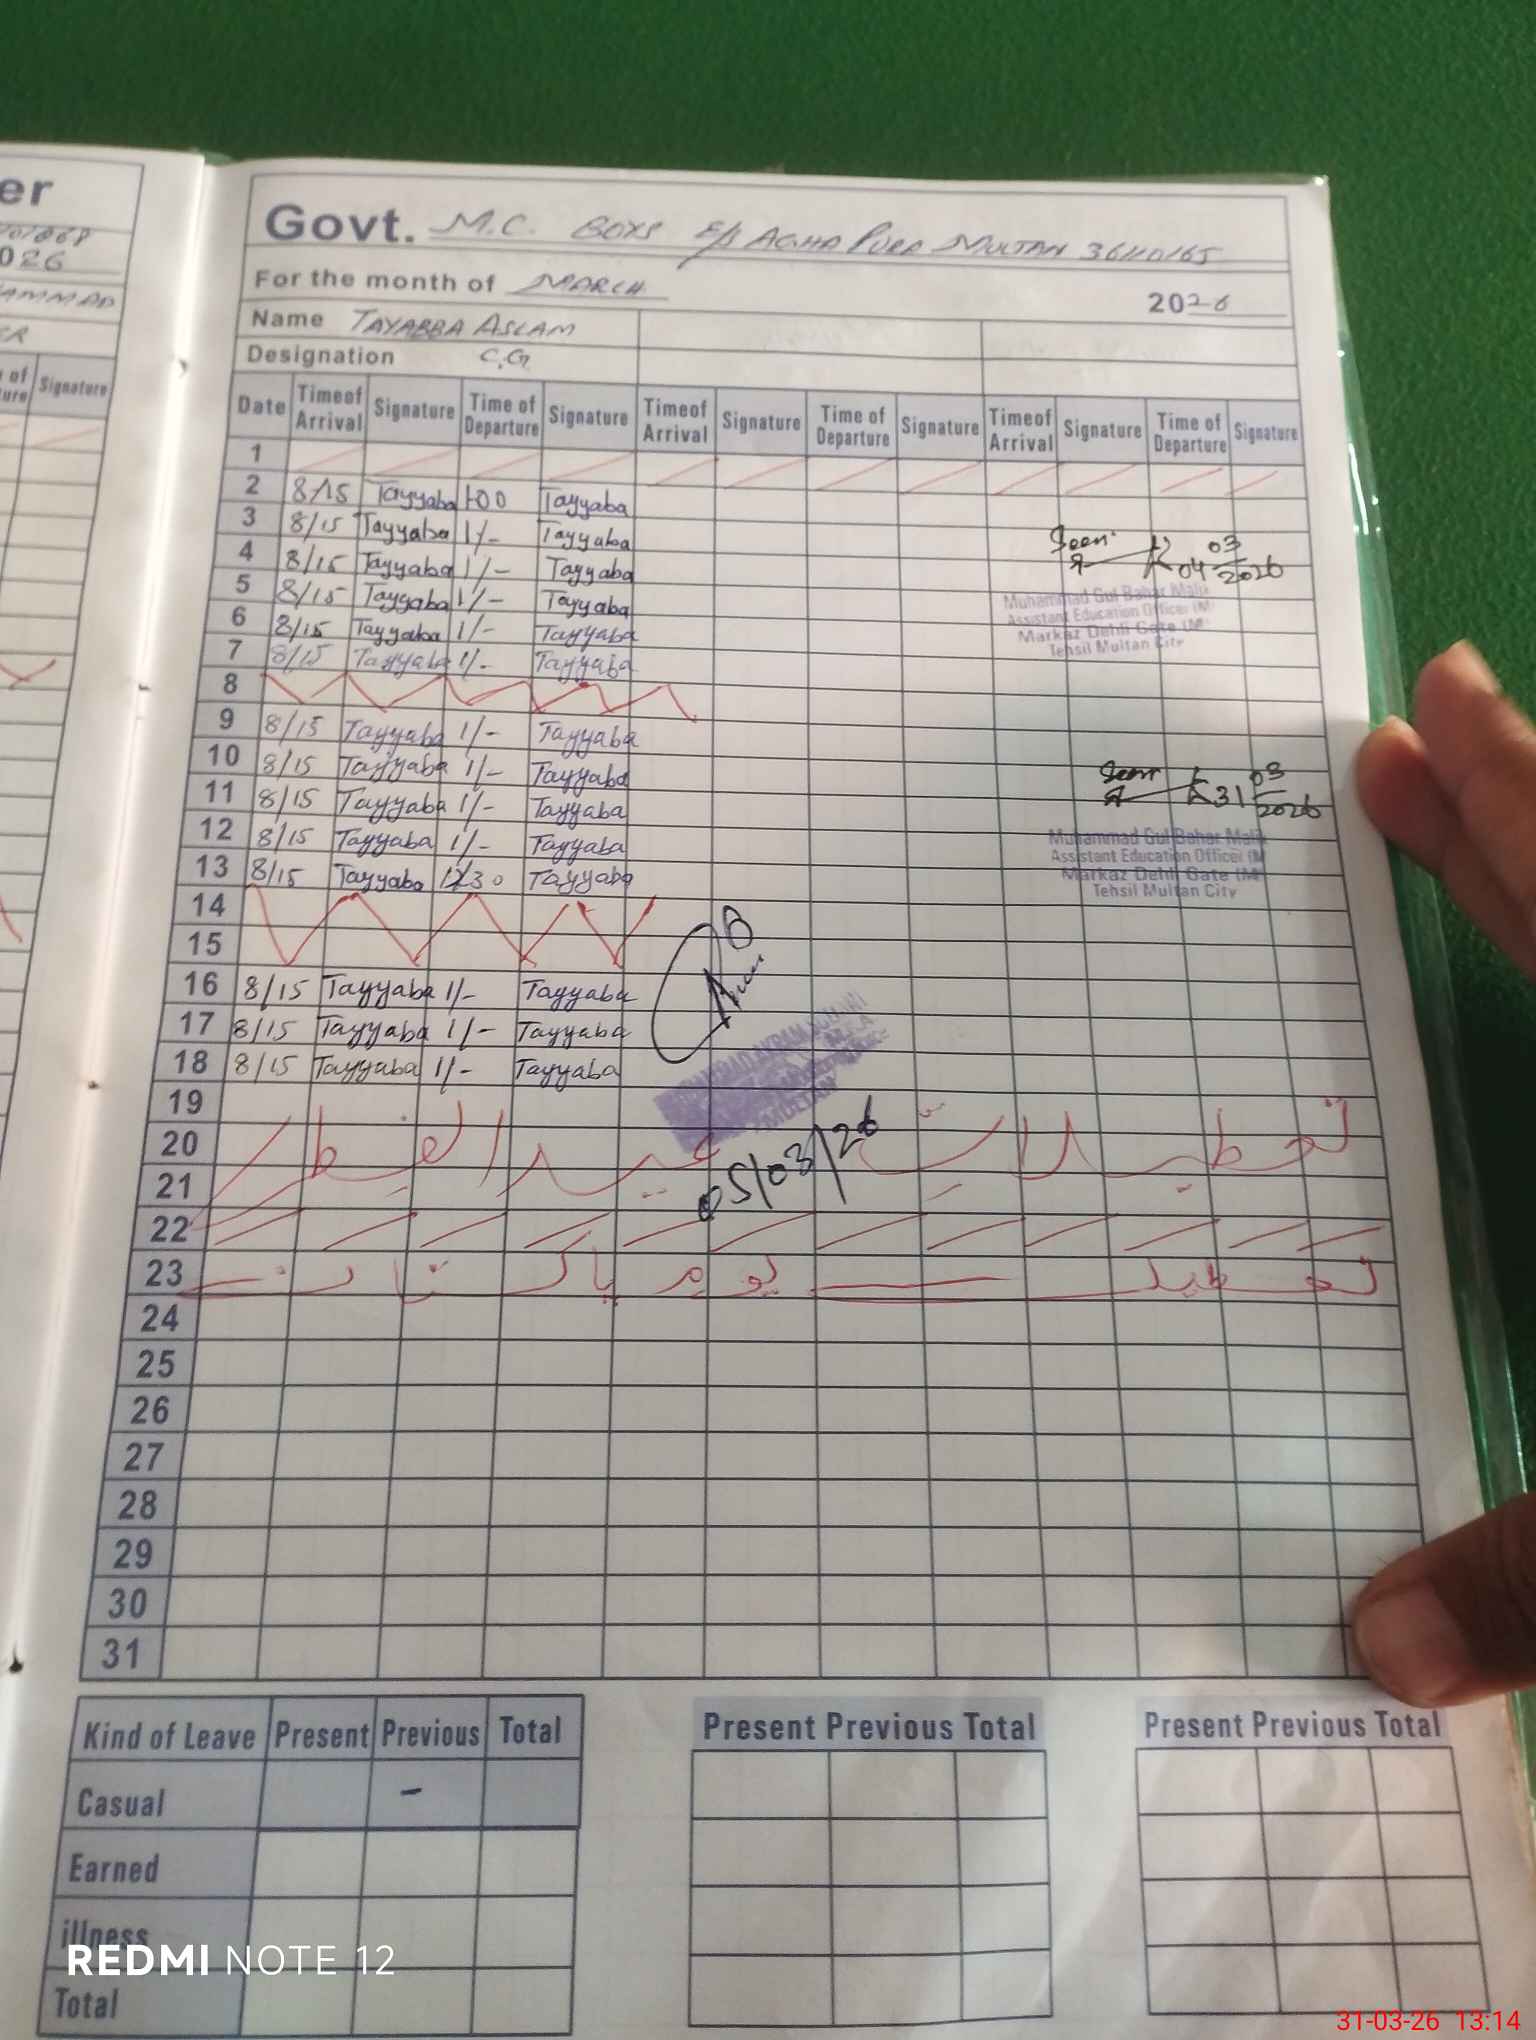 er
026
AMMAD
ER
Signature
Govt. M.C. BOYS E/S AGHA PURA MULTAN 36110165
For the month of MARCH 2026
Name TAYABBA ASLAM
Designation C.G
Date Timeof Arrival Signature Time of Departure Signature Timeof Arrival Signature Time of Departure Signature Timeof Arrival Signature Time of Departure Signature
1
2 8/15 Tayyaba 1-00 Tayyaba
3 8/15 Tayyaba 1/- Tayyaba
4 8/15 Tayyaba 1/- Tayyaba
5 8/15 Tayyaba 1/- Tayyaba
6 8/15 Tayyaba 1/- Tayyaba
7 8/15 Tayyaba 1/- Tayyaba
8
9 8/15 Tayyaba 1/- Tayyaba
10 8/15 Tayyaba 1/- Tayyaba
11 8/15 Tayyaba 1/- Tayyaba
12 8/15 Tayyaba 1/- Tayyaba
13 8/15 Tayyaba 12/30 Tayyaba
14
15
16 8/15 Tayyaba 1/- Tayyaba
17 8/15 Tayyaba 1/- Tayyaba
18 8/15 Tayyaba 1/- Tayyaba
19
20
21
22
23
24
25
26
27
28
29
30
31
Seen
04 03/2026
Muhammad Gul Bahar Malik
Assistant Education Officer (M
Markaz Dehli Gate (M
Tehsil Multan City
Seen
31 03/2026
Muhammad Gul Bahar Malik
Assistant Education Officer (M
Markaz Dehli Gate (M
Tehsil Multan City
05/03/26
تعطیلات عید الفطر
تعطیل یوم پاکستان
Kind of Leave Present Previous Total
Casual -
Earned
illness
Total
Present Previous Total
Present Previous Total
REDMI NOTE 12
31-03-26 13:14